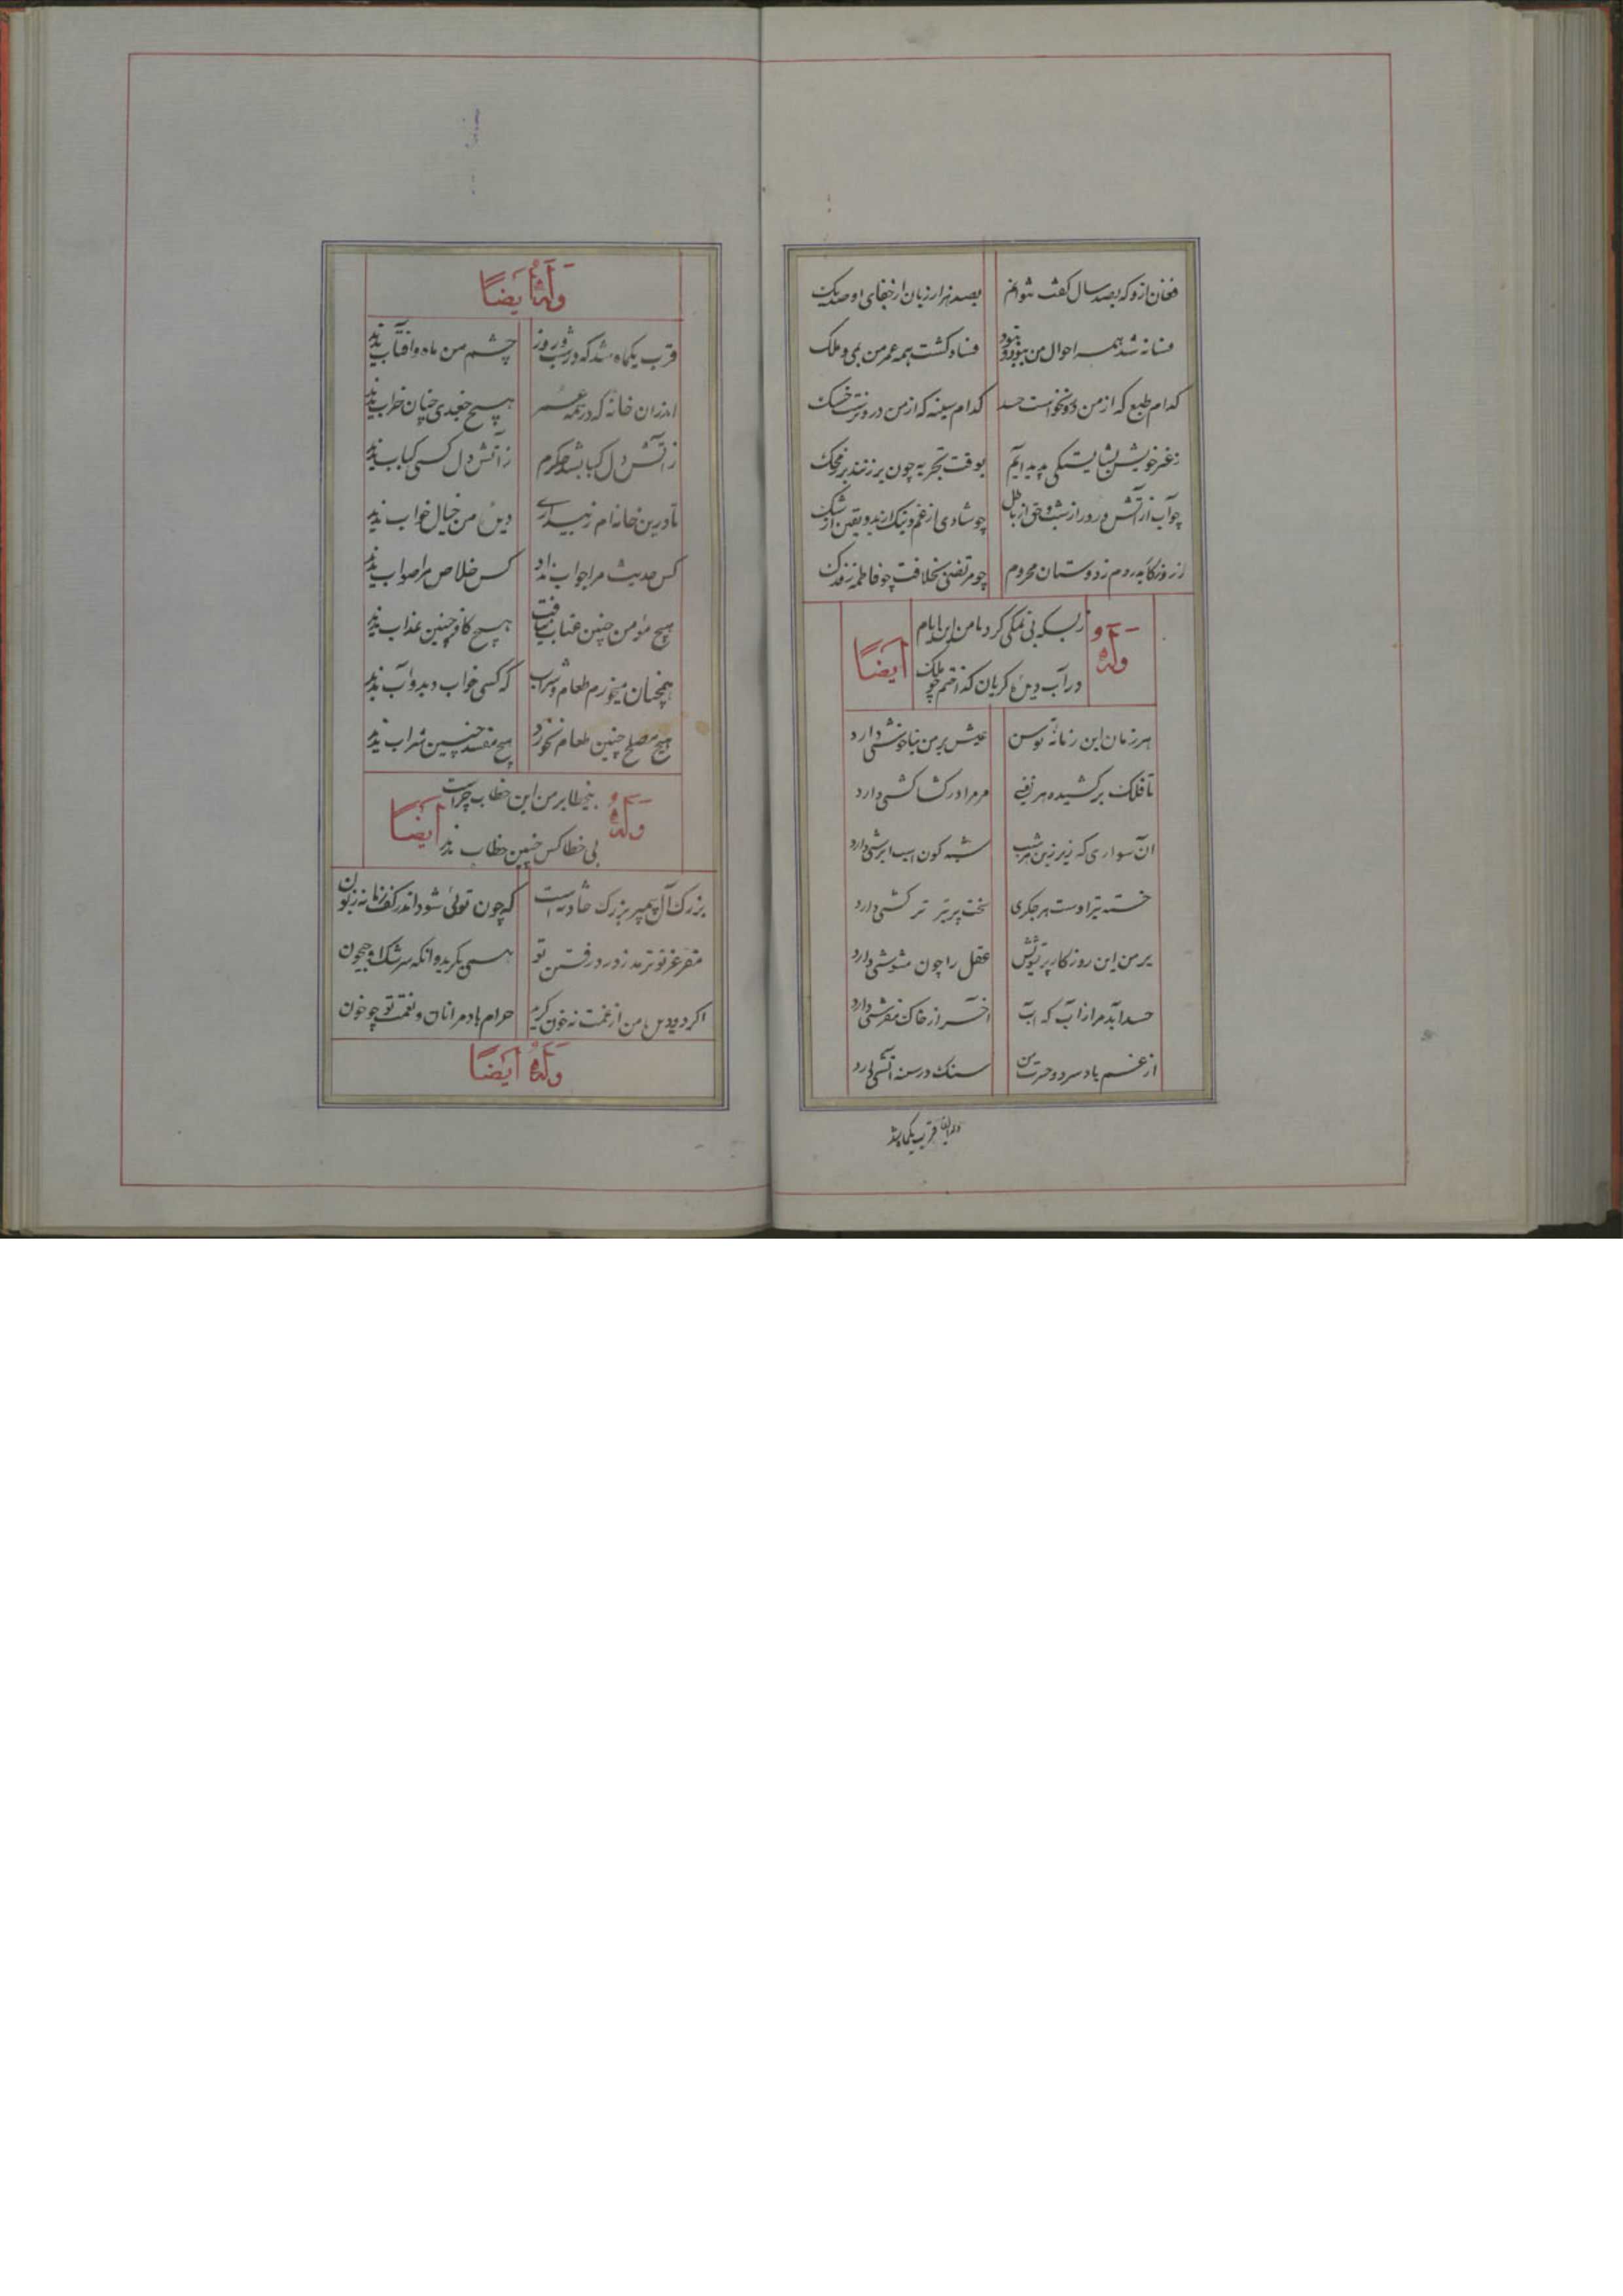 فغان ازو که بصد سال گفت نتوانم بصد هزار زبان از جفای او صد یک
فسانه شد همه احوال من ببود و نبود فساد گشت همه عمر من بمی و ملک
کدام طبع که از من درو نخواست حسد کدام سینه که از من درو نرست خسک
ز غیر خویش بشایستگی پدید آیم بوقت تجربه چون برزنند بر محک
چو آب از آتش و روز از شب و حق از باطل چو شادی از غم و نیک از بد و یقین از شک
ز روزگار بدردم ز دوستان محروم چو مرتضی ز خلافت چو فاطمه ز فدک
وله ز بسکه بی نمکی کرد با من این ایام ایضا
در آب دیده گریان گداختم چو نمک
هر زمان این زمانه توسن عیش بر من بناخوشی دارد
تا فلک برکشیده هر نفسی مر مرا در کشاکشی دارد
آن سواری که زیر زین هر شب شبه گون اسب ابرشی دارد
خسته تیر اوست هر جگری سخت پر تیر ترکشی دارد
بر من این روزگار پر تشویش عقل را چون مشوشی دارد
حسد آید مرا ز آب که آب آخر از خاک مفرشی دارد
از غم باد سرد و حسرت من سنگ در سینه آتشی دارد
وله ایضا قرب یکماه شد
وله ایضا
قرب یکماه شد که در شب و روز چشم من ماه و آفتاب ندید
اندران خانه که در همه عمر هیچ جغدی چنان خراب ندید
ز آتش دل کباب شد جگرم ز آتش دل کسی کباب ندید
تا درین خانه ام ز بیداری دیده من خیال خواب ندید
کس حدیث مرا جواب نداد کس خلاص مرا صواب ندید
هیچ مؤمن چنین عتاب نیافت هیچ کافر چنین عذاب ندید
همچنان میخورم طعام و شراب که کسی خواب دید و آب ندید
هیچ مصلح چنین طعام نخورد هیچ مفسد چنین شراب ندید
وله بیخطا بر من این خطاب چراست ایضا
بی خطا کس چنین خطاب ندید
بزرگ آل پیمبر بزرگ حادثه است که چون توئی شود اندر کف زمانه زبون
همی بگرید و آنکه سرشک او جیحون
اگر دو دیده من از غمت نه خون گرید حرام باد مرا نان و نعمت تو چو خون
وله ایضا